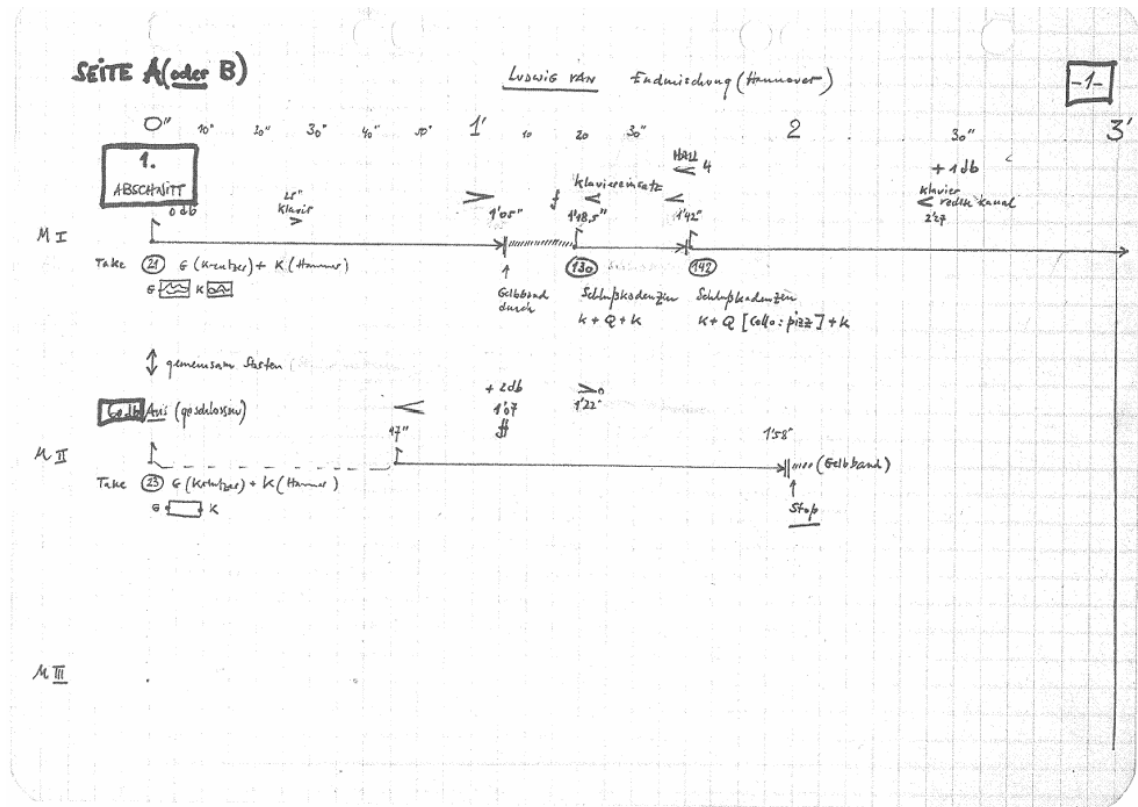 SEITE A (oder B)
LUDWIG VAN Endmischung (Hannover)
-1-
0" 10" 20" 30" 40" 50" 1' 10 20 30" 2 30" 3'
1.
ABSCHNITT
HALL
< 4
+ 1 db
0 db
25"
Klavier
>
>
1'05"
f
Klaviereinsatz
< <
1'18,5"
1'42"
Klavier
< rechter Kanal
2'27
M I
Take 21 G (Kreutzer) + K (Hammer)
G K
↑
Gelbband
durch
130
Schlußkadenzen
K + Q + K
142
Schlußkadenzen
K + Q [Cello: pizz] + K
↕ gemeinsam Starten
Aus (geschlossen)
<
47"
+ 2db
1'07
> 0
1'22"
1'58"
M II
(Gelbband)
Take 23 G (Kreutzer) + K (Hammer)
G K
↑
Stop
M III